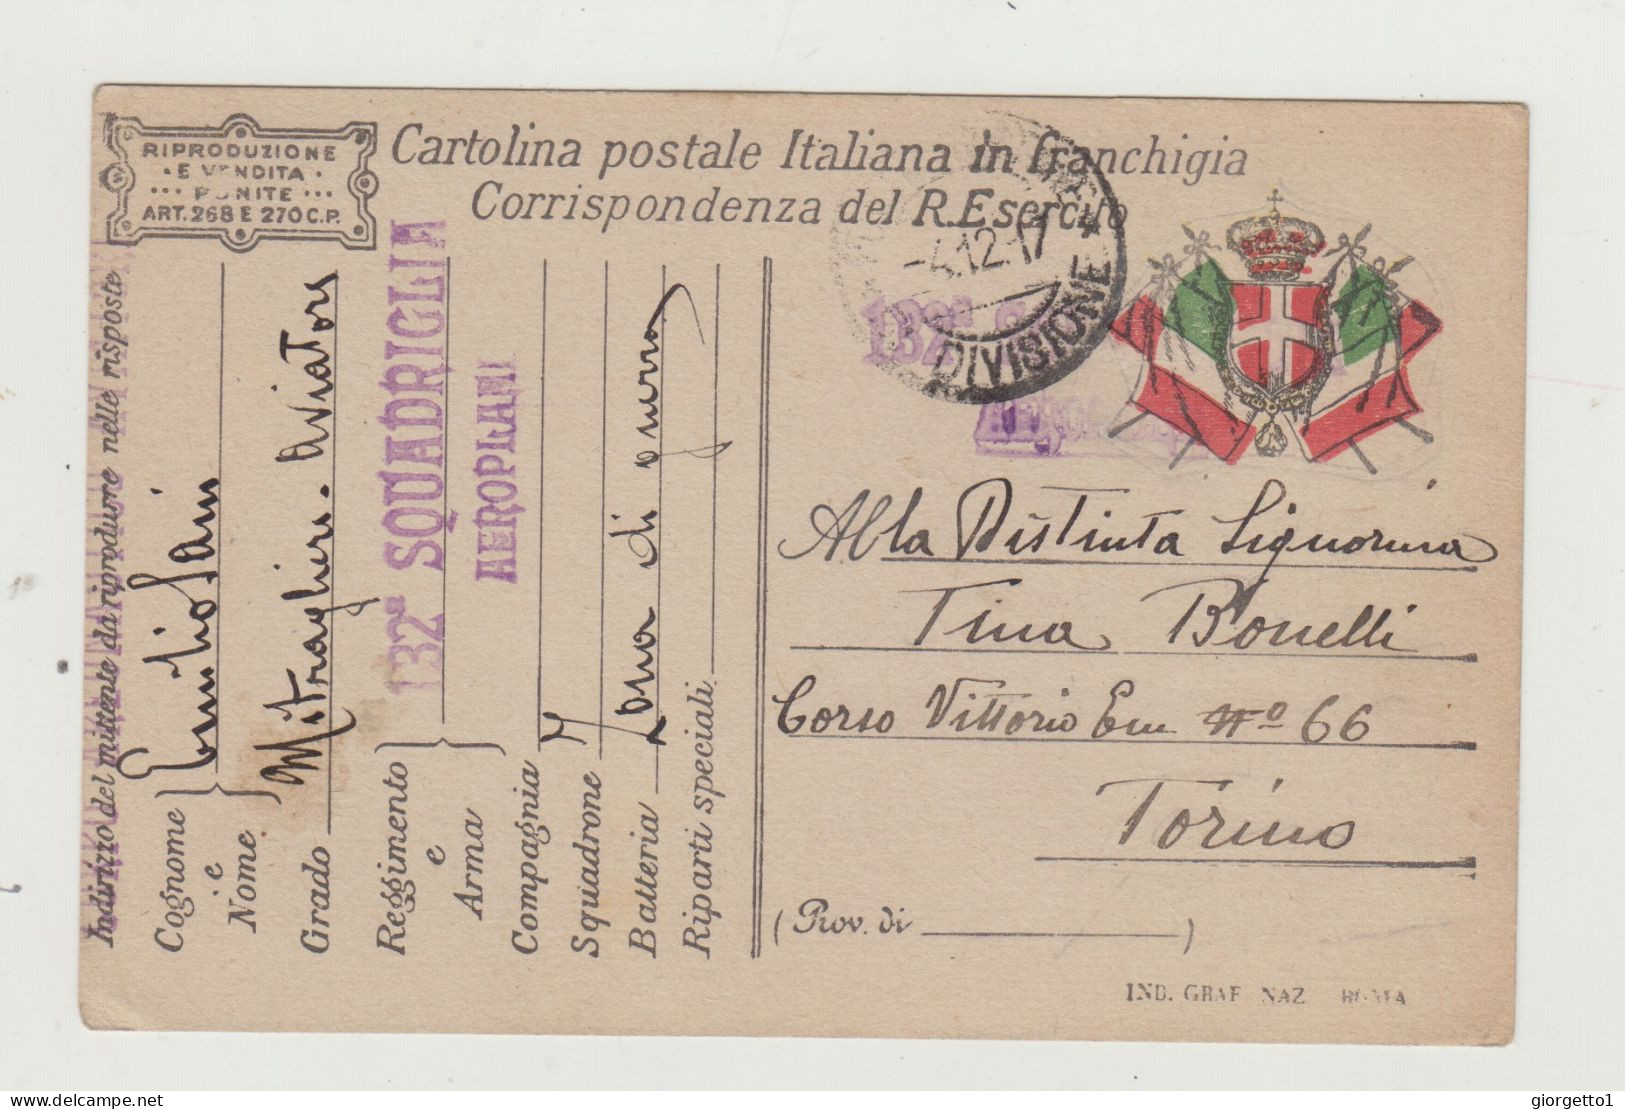 RIPRODUZIONE
E VENDITA
PUNITE
ART. 268 E 270 C.P.
Cartolina postale Italiana in franchigia
Corrispondenza del R. Esercito
-4.12.17
DIVISIONE
132ª
Indirizzo del mittente da riprodurre nelle risposte
Cognome
e
Nome
Emilio
Grado
Mitragliere. Aviatore
Reggimento
e
Arma
132ª SQUADRIGLIA
AEROPLANI
Compagnia
Squadrone
Batteria
Zona di guerra
Riparti speciali
Alla Distinta Signorina
Tina Bonelli
Corso Vittorio Em Nº 66
Torino
(Prov. di )
IND. GRAF NAZ ROMA
delcampe.net
giorgetto1